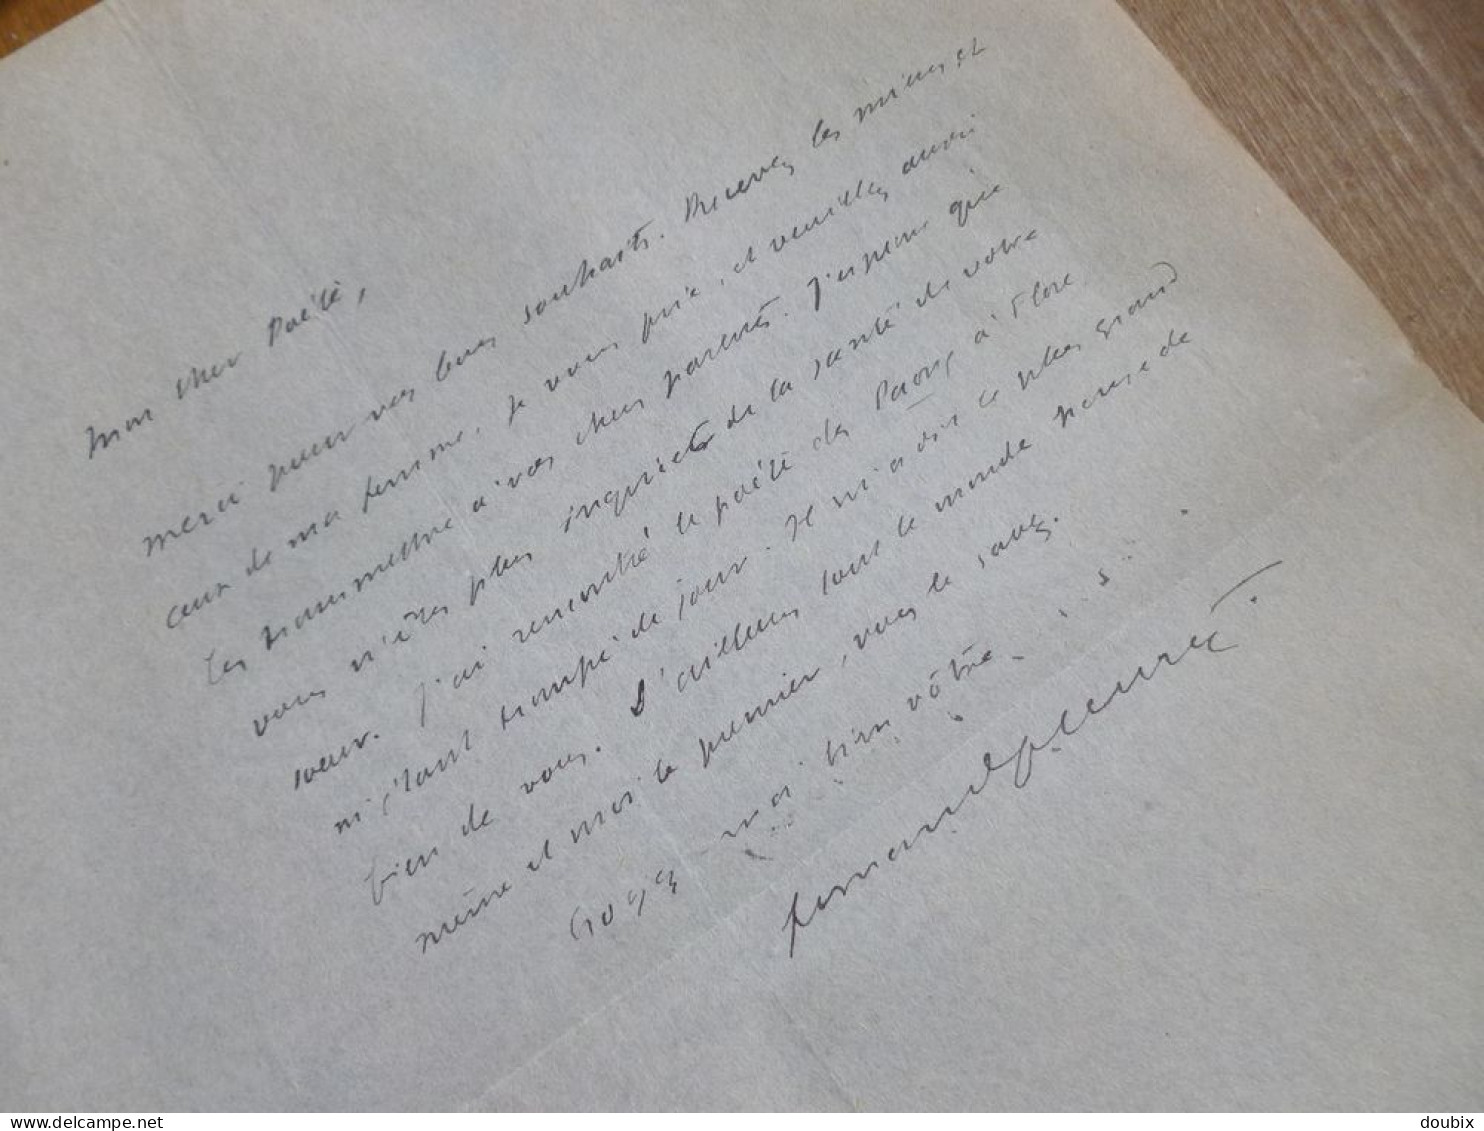 Mon cher Poète,
merci pour vos bons souhaits. Recevez les miens et
ceux de ma femme, je vous prie, et veuillez aussi
les transmettre à vos chers parents. J'espère que
vous n'êtes plus inquiets de la santé de votre
sœur. J'ai rencontré le poète à Flore
m'étant trompé de jour. Il m'a dit le plus grand
bien de vous. D'ailleurs tout le monde pense de
même et moi le premier, vous le savez.
Croyez moi bien vôtre
Fernand Fleuret.
delcampe.net
doubix